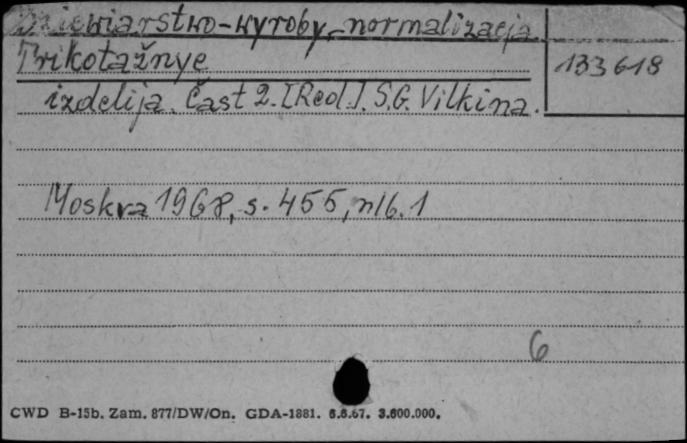 Dziewiarstwo-wyroby-normalizacja
Trikotažnye
133618
izdelija. Čast 2. [Red.]. S.G. Vilkina.
Moskva 1968, s. 455, nlb. 1
6
CWD B-15b. Zam. 877/DW/On. GDA-1881. 6.6.67. 3.600.000.